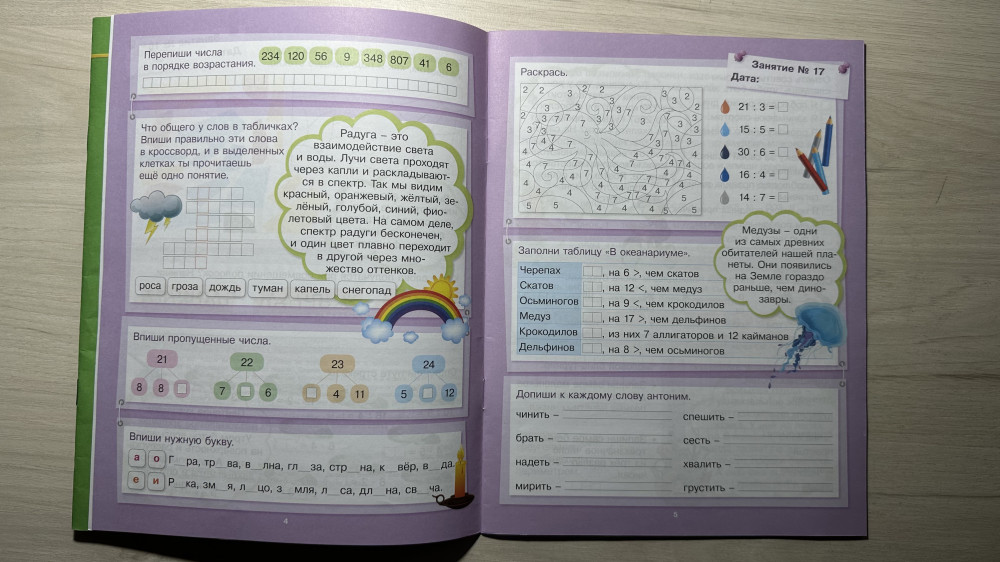 Перепиши числа
в порядке возрастания.
234 120 56 9 348 807 41 6
Что общего у слов в табличках?
Впиши правильно эти слова
в кроссворд, и в выделенных
клетках ты прочитаешь
ещё одно понятие.
Радуга – это
взаимодействие света
и воды. Лучи света проходят
через капли и раскладывают-
ся в спектр. Так мы видим
красный, оранжевый, жёлтый, зе-
лёный, голубой, синий, фио-
летовый цвета. На самом деле,
спектр радуги бесконечен,
и один цвет плавно переходит
в другой через мно-
жество оттенков.
роса гроза дождь туман капель снегопад
Впиши пропущенные числа.
21 22 23 24
8 8 7 6 4 11 5 12
Впиши нужную букву.
а о Г__ра, тр__ва, в__лна, гл__за, стр__на, к__вёр, в__да.
е и Р__ка, зм__я, л__цо, з__мля, л__са, дл__на, св__ча.
4
Занятие № 17
Дата:
Раскрась.
21 : 3 =
15 : 5 =
30 : 6 =
16 : 4 =
14 : 7 =
Заполни таблицу «В океанариуме».
Черепах , на 6 >, чем скатов
Скатов , на 12 <, чем медуз
Осьминогов , на 9 <, чем крокодилов
Медуз , на 17 >, чем дельфинов
Крокодилов , из них 7 аллигаторов и 12 кайманов
Дельфинов , на 8 >, чем осьминогов
Медузы – одни
из самых древних
обитателей нашей пла-
неты. Они появились
на Земле гораздо
раньше, чем дино-
завры.
Допиши к каждому слову антоним.
чинить – спешить –
брать – сесть –
надеть – хвалить –
мирить – грустить –
5